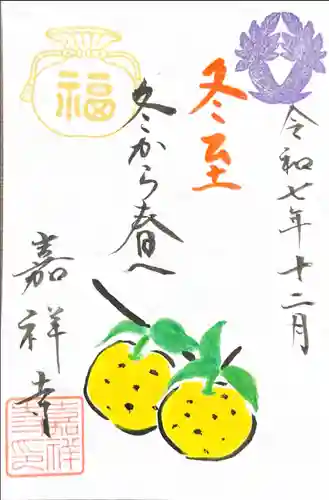 令和七年十二月
冬至
冬から春へ
福
嘉祥寺